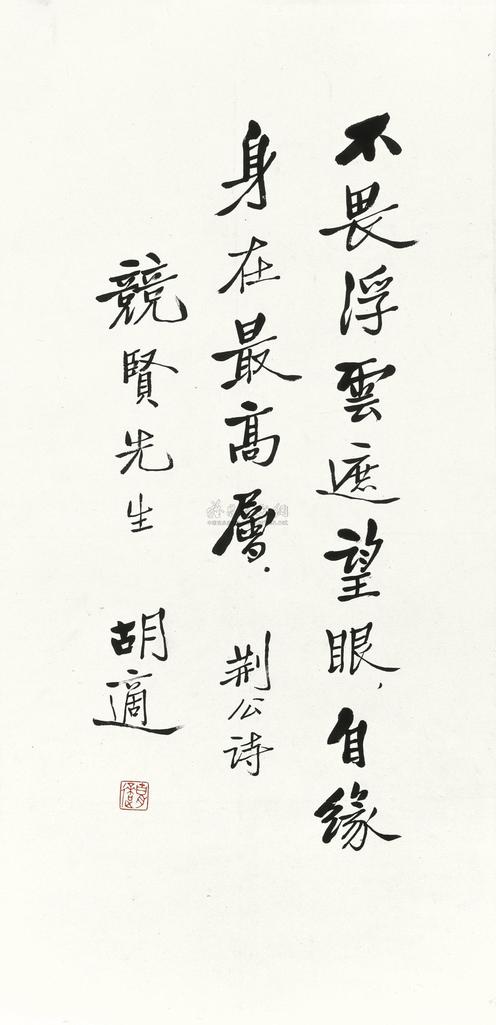 不畏浮雲遮望眼，自缘
身在最高層．荆公诗
競賢先生 胡適